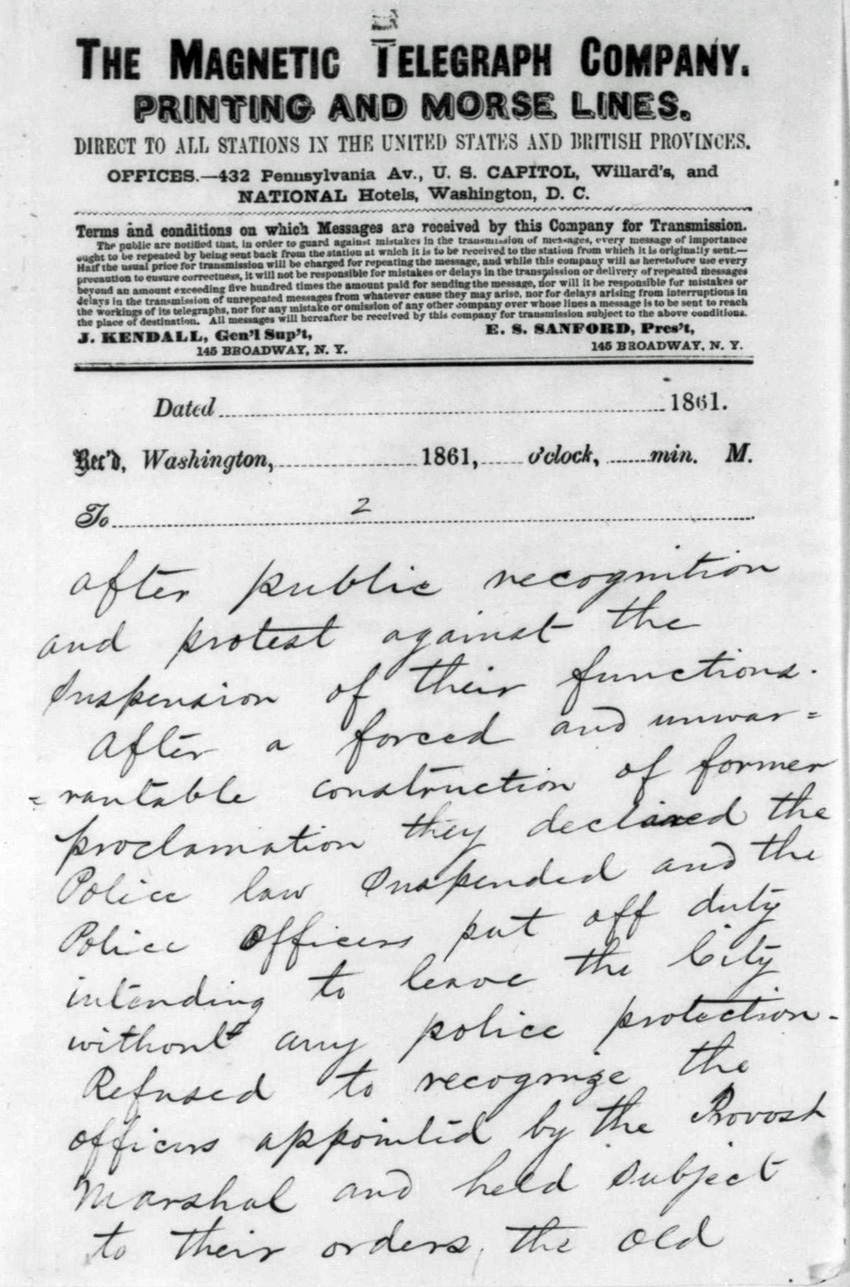 THE MAGNETIC TELEGRAPH COMPANY.
PRINTING AND MORSE LINES.
DIRECT TO ALL STATIONS IN THE UNITED STATES AND BRITISH PROVINCES.
OFFICES.—432 Pennsylvania Av., U. S. CAPITOL, Willard's, and
NATIONAL Hotels, Washington, D. C.
Terms and conditions on which Messages are received by this Company for Transmission.
The public are notified that, in order to guard against mistakes in the transmission of messages, every message of importance
ought to be repeated by being sent back from the station at which it is to be received to the station from which it is originally sent.—
Half the usual price for transmission will be charged for repeating the message, and while this company will as heretofore use every
precaution to ensure correctness, it will not be responsible for mistakes or delays in the transmission or delivery of repeated messages
beyond an amount exceeding five hundred times the amount paid for sending the message, nor will it be responsible for mistakes or
delays in the transmission of unrepeated messages from whatever cause they may arise, nor for delays arising from interruptions in
the workings of its telegraphs, nor for any mistake or omission of any other company over whose lines a message is to be sent to reach
the place of destination. All messages will hereafter be received by this company for transmission subject to the above conditions.
J. KENDALL, Gen'l Sup't, E. S. SANFORD, Pres't,
145 BROADWAY, N. Y. 145 BROADWAY, N. Y.
Dated 1861.
Rec'd, Washington, 1861, o'clock, min. M.
To 2
after public recognition
and protest against the
Suspension of their functions.
After a forced and unwar=
=rantable construction of former
proclamation they declared the
Police law Suspended and the
Police Officers put off duty
intending to leave the City
without any police protection-
Refused to recognize the
officers appointed by the Provost
Marshal and held subject
to their orders, the old